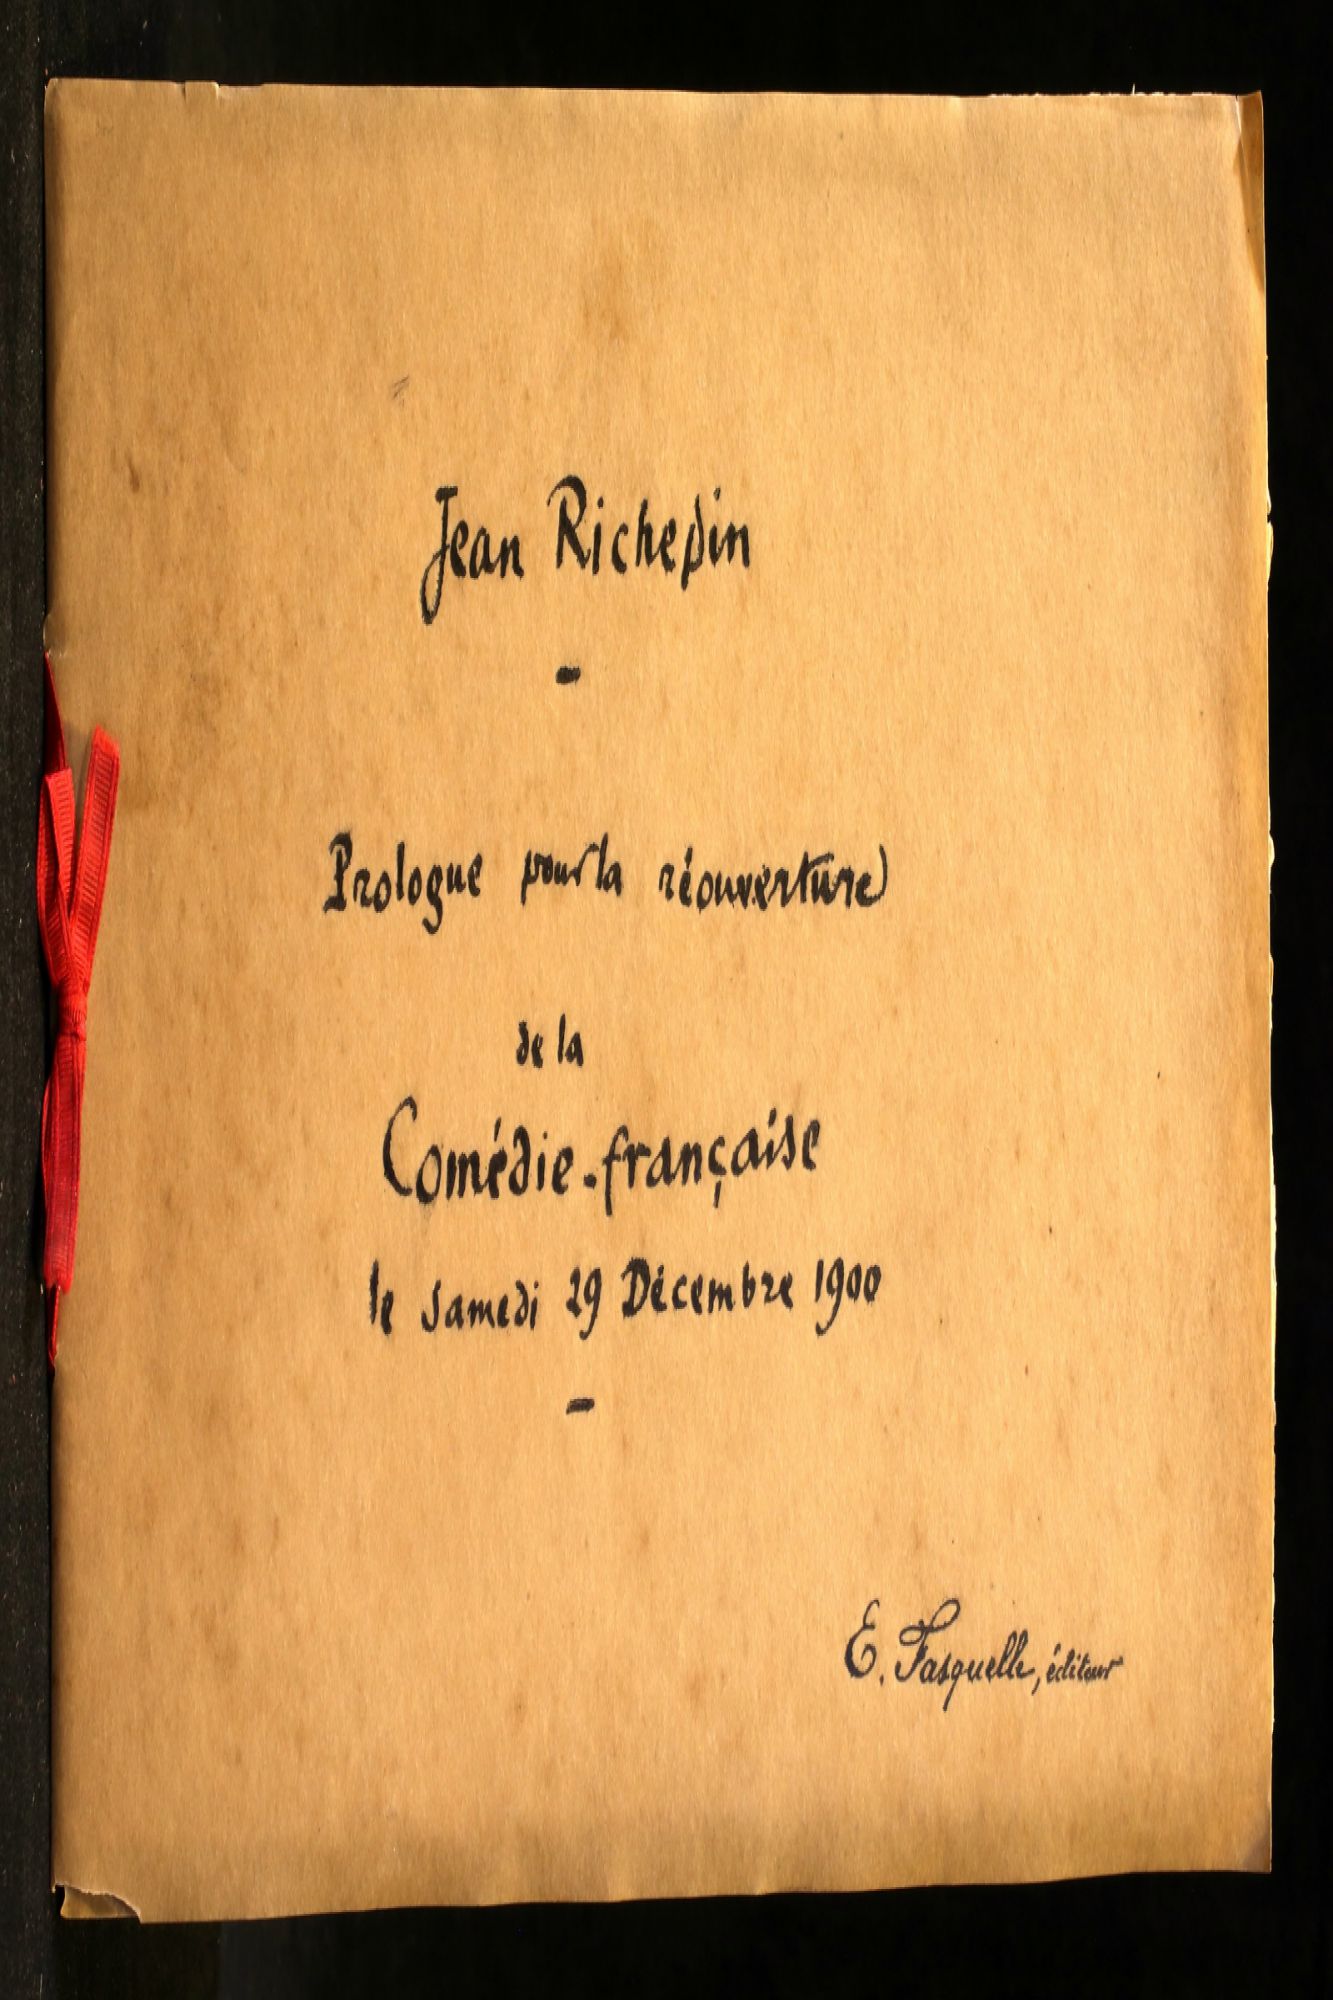 Jean Richepin
-
Prologue pour la réouverture
de la
Comédie-française
le Samedi 29 Décembre 1900
-
E. Fasquelle, éditeur